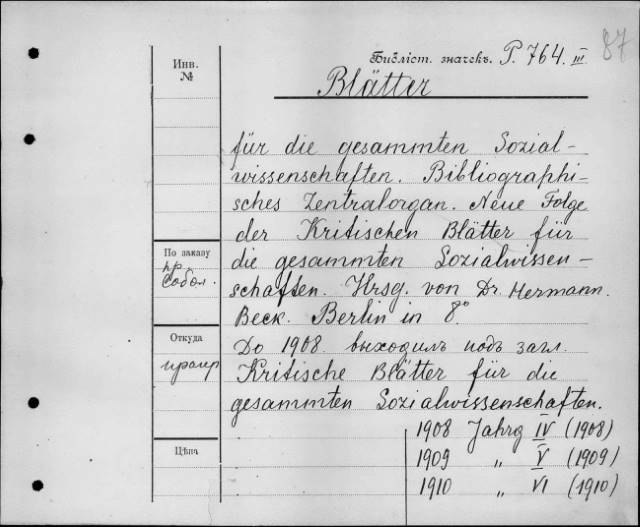 87
Библіот. значекъ. P. 764. III
Инв.
№
Blätter
für die gesammten Sozial-
wissenschaften. Bibliographi-
sches Zentralorgan. Neue Folge
der Kritischen Blätter für
По заказу
пр.
Собол.
die gesammten Sozialwissen-
schaften. Hrsg. von Dr. Hermann.
Beck. Berlin in 8°
Откуда
До 1908. выходилъ подъ загл.
Kritische Blätter für die
gesammten Sozialwissenschaften.
Цѣна
1908 Jahrg IV (1908)
1909 „ V (1909)
1910 „ VI (1910)